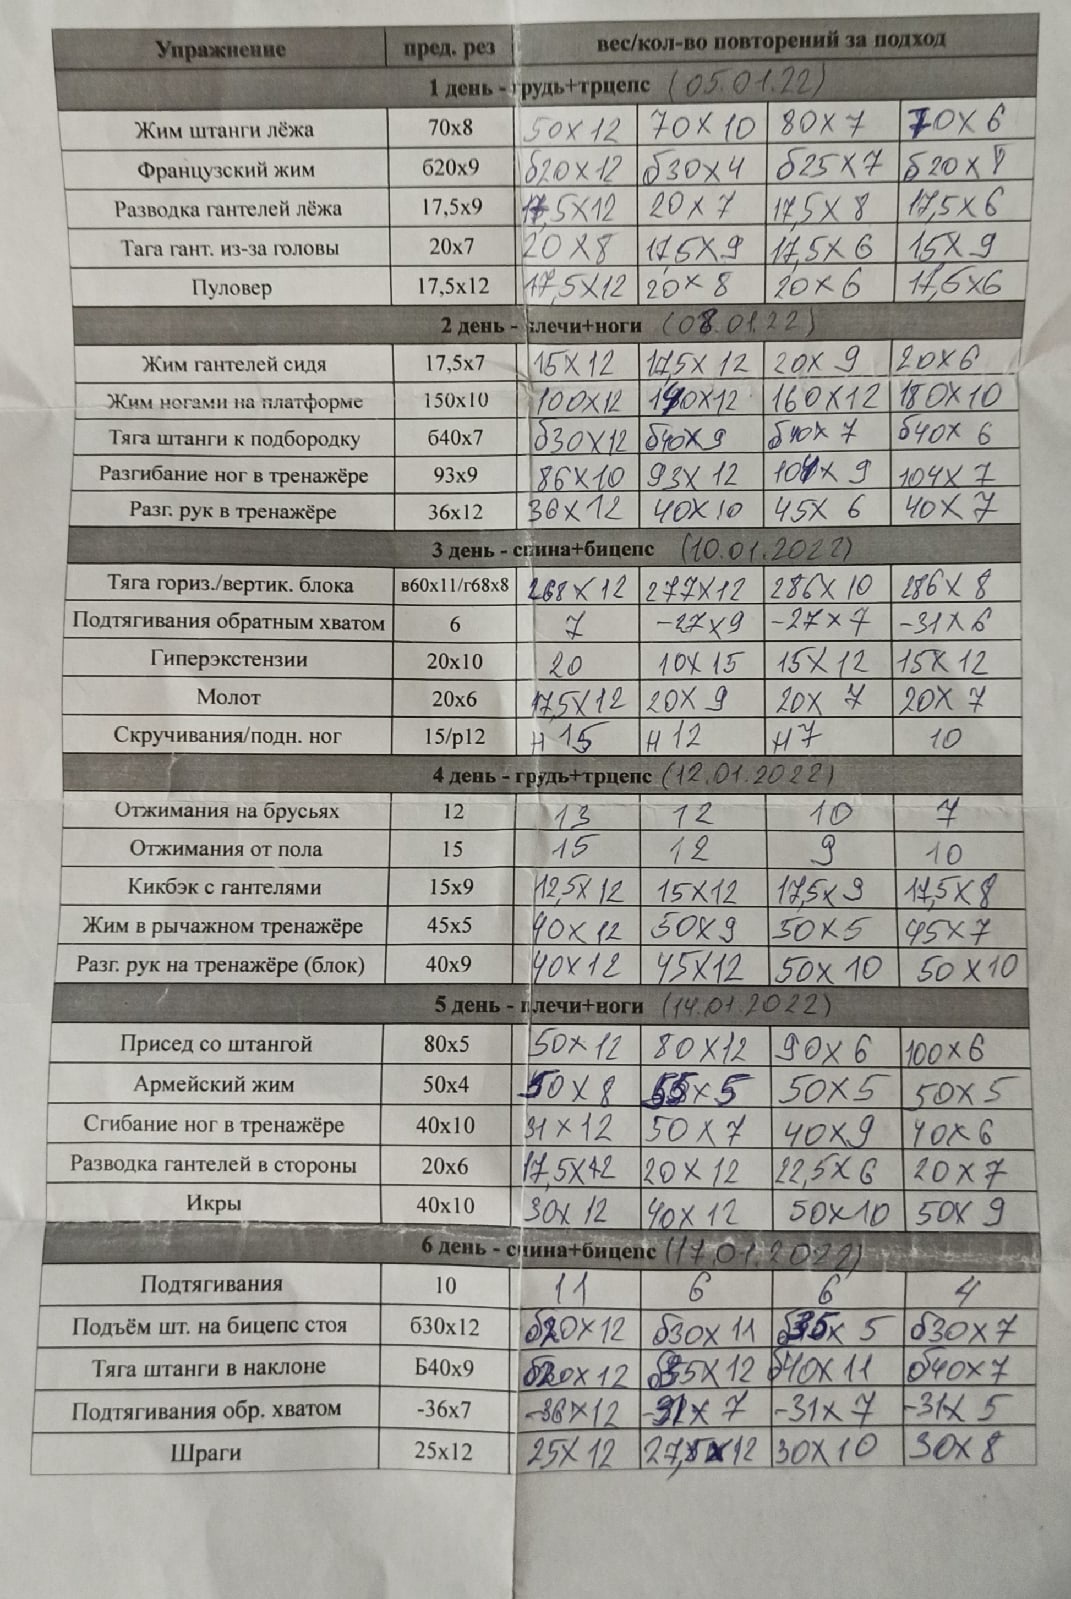 Упражнение пред. рез вес/кол-во повторений за подход
1 день - грудь+трцепс (05.01.22)
Жим штанги лёжа 70х8 50х12 70х10 80х7 70х6
Французский жим б20х9 б20х12 б30х4 б25х7 б20х8
Разводка гантелей лёжа 17,5х9 17,5х12 20х7 17,5х8 17,5х6
Тага гант. из-за головы 20х7 20х8 17,5х9 17,5х6 15х9
Пуловер 17,5х12 17,5х12 20х8 20х6 17,5х6
2 день - плечи+ноги (08.01.22)
Жим гантелей сидя 17,5х7 15х12 17,5х12 20х9 20х6
Жим ногами на платформе 150х10 100х12 140х12 160х12 180х10
Тяга штанги к подбородку б40х7 б30х12 б40х9 б40х7 б40х6
Разгибание ног в тренажёре 93х9 86х10 93х12 104х9 104х7
Разг. рук в тренажёре 36х12 36х12 40х10 45х6 40х7
3 день - спина+бицепс (10.01.2022)
Тяга гориз./вертик. блока в60х11/г68х8 г68х12 г77х12 г86х10 г86х8
Подтягивания обратным хватом 6 7 -27х9 -27х7 -31х6
Гиперэкстензии 20х10 20 10х15 15х12 15х12
Молот 20х6 17,5х12 20х9 20х7 20х7
Скручивания/подн. ног 15/р12 н 15 н 12 н7 10
4 день - грудь+трцепс (12.01.2022)
Отжимания на брусьях 12 13 12 10 7
Отжимания от пола 15 15 12 9 10
Кикбэк с гантелями 15х9 12,5х12 15х12 17,5х9 17,5х8
Жим в рычажном тренажёре 45х5 40х12 50х9 50х5 45х7
Разг. рук на тренажёре (блок) 40х9 40х12 45х12 50х10 50х10
5 день - плечи+ноги (14.01.2022)
Присед со штангой 80х5 50х12 80х12 90х6 100х6
Армейский жим 50х4 50х8 55х5 50х5 50х5
Сгибание ног в тренажёре 40х10 31х12 50х7 40х9 40х6
Разводка гантелей в стороны 20х6 17,5х12 20х12 22,5х6 20х7
Икры 40х10 30х12 40х12 50х10 50х9
6 день - спина+бицепс (17.01.2022)
Подтягивания 10 11 6 6 4
Подъём шт. на бицепс стоя б30х12 б20х12 б30х11 б35х5 б30х7
Тяга штанги в наклоне Б40х9 б35х12 б40х11 б40х7
Подтягивания обр. хватом -36х7 -36х12 -31х7 -31х7 -31х5
Шраги 25х12 25х12 27,5х12 30х10 30х8